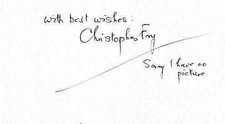 with best wishes:
Christopher Fry
Sorry I have no
picture